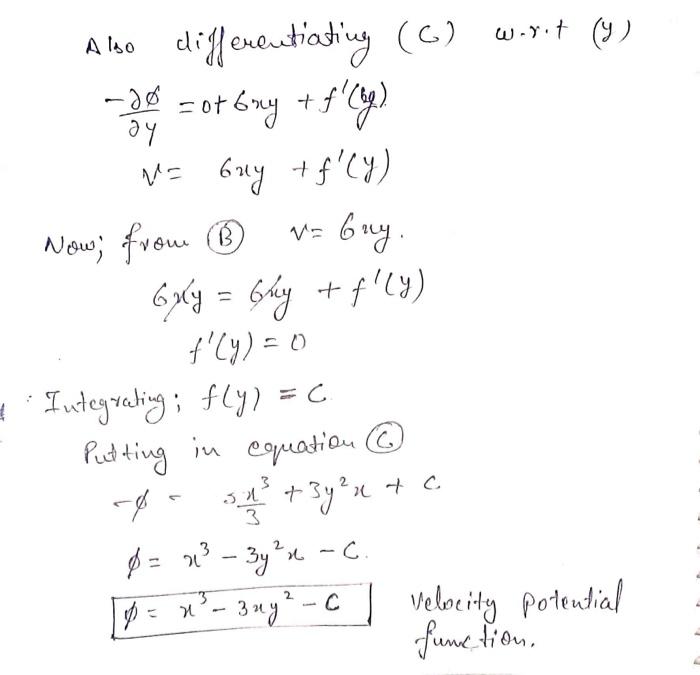 Also differentiating (C) w.r.t (y)
-∂φ/∂y = 0 + 6xy + f'(y)
v = 6xy + f'(y)
Now; from (B) v = 6xy.
6xy = 6xy + f'(y)
f'(y) = 0
Integrating; f(y) = C
Putting in equation (C)
-φ = x³/3 + 3y²x + C
φ = x³ - 3y²x - C.
φ = x³ - 3xy² - C velocity potential function.